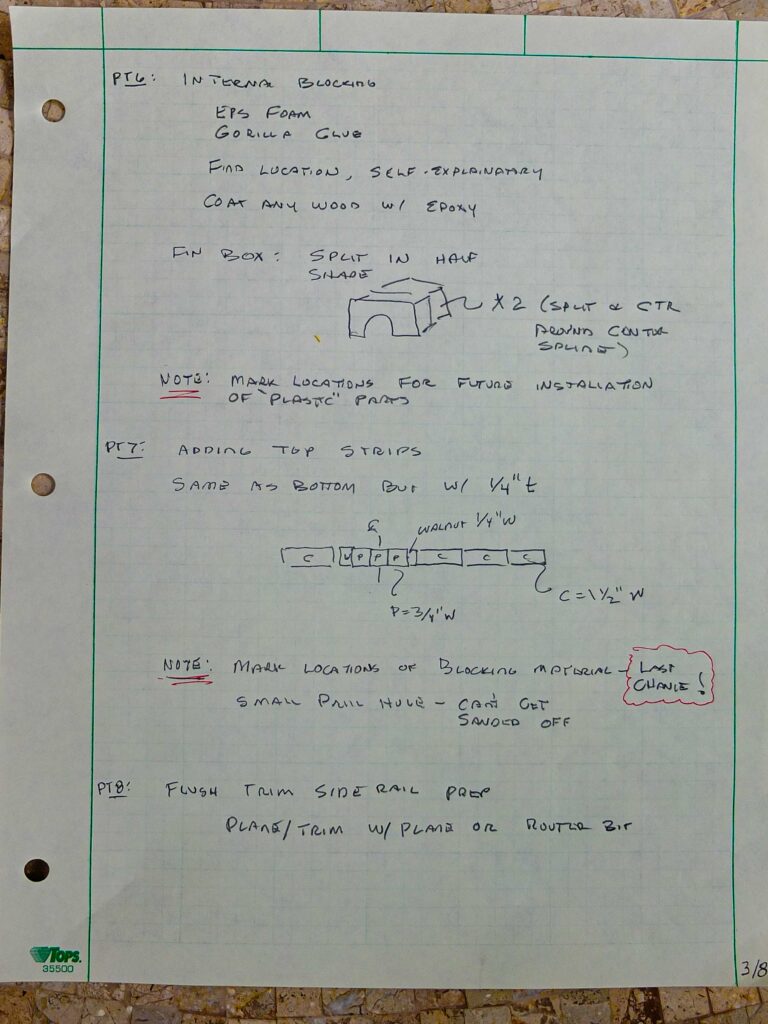 PT6: INTERNAL BLOCKING
EPS FOAM
GORILLA GLUE
FIND LOCATION, SELF-EXPLAINATARY
COAT ANY WOOD W/ EPOXY
FIN BOX: SPLIT IN HALF
SHAPE
X 2 (SPLIT @ CTR
AROUND CENTER
SPLINE)
NOTE: MARK LOCATIONS FOR FUTURE INSTALLATION
OF "PLASTIC" PARTS
PT7: ADDING TOP STRIPS
SAME AS BOTTOM BUT W/ 1/4" t
WALNUT 1/4" W
C W P P P C C C
P = 3/4" W
C = 1 1/2" W
NOTE: MARK LOCATIONS OF BLOCKING MATERIAL - LAST
CHANCE!
SMALL DRILL HOLE - CAN'T GET
SANDED OFF
PT8: FLUSH TRIM SIDE RAIL PREP
PLANE/TRIM W/ PLANE OR ROUTER BIT
TOPS.
35500
3/8